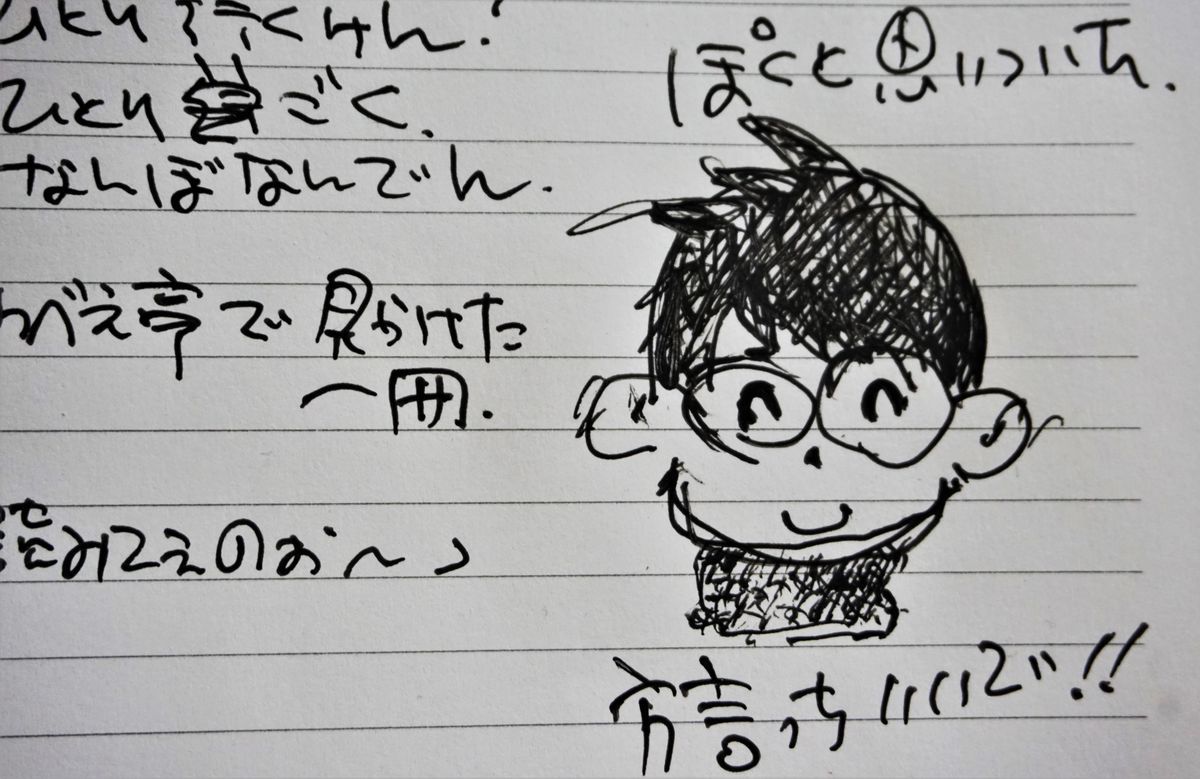 ひとり行くけん!
ひとりごく.
なんぼなんでん.
べえ亭で見かけた
一冊.
読みてえのお〜っ
ぽくと思いついた.
方言っちいいで!!